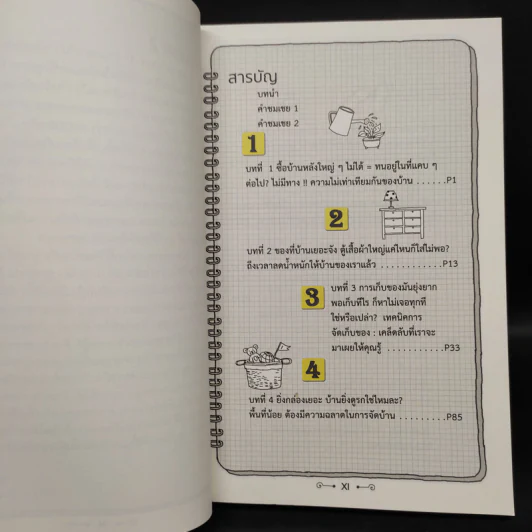 สารบัญ
บทนำ
คำชมเชย 1
คำชมเชย 2
1
บทที่ 1 ซื้อบ้านหลังใหญ่ ๆ ไม่ได้ = ทนอยู่ในที่แคบ ๆ
ต่อไป? ไม่มีทาง !! ความไม่เท่าเทียมกันของบ้าน . . . . . .P1
2
บทที่ 2 ของที่บ้านเยอะจัง ตู้เสื้อผ้าใหญ่แค่ไหนก็ใส่ไม่พอ?
ถึงเวลาลดน้ำหนักให้บ้านของเราแล้ว . . . . . . . . . . . . .P13
3
บทที่ 3 การเก็บของมันยุ่งยาก
พอเก็บทีไร ก็หาไม่เจอทุกที
ใช่หรือเปล่า? เทคนิคการ
จัดเก็บของ : เคล็ดลับที่เราจะ
มาเผยให้คุณรู้ . . . . . . . . . . .P33
4
บทที่ 4 ยิ่งกล่องเยอะ บ้านยิ่งดูรกใช่ไหมละ?
พื้นที่น้อย ต้องมีความฉลาดในการจัดบ้าน . . . . . . . . .P85
XI